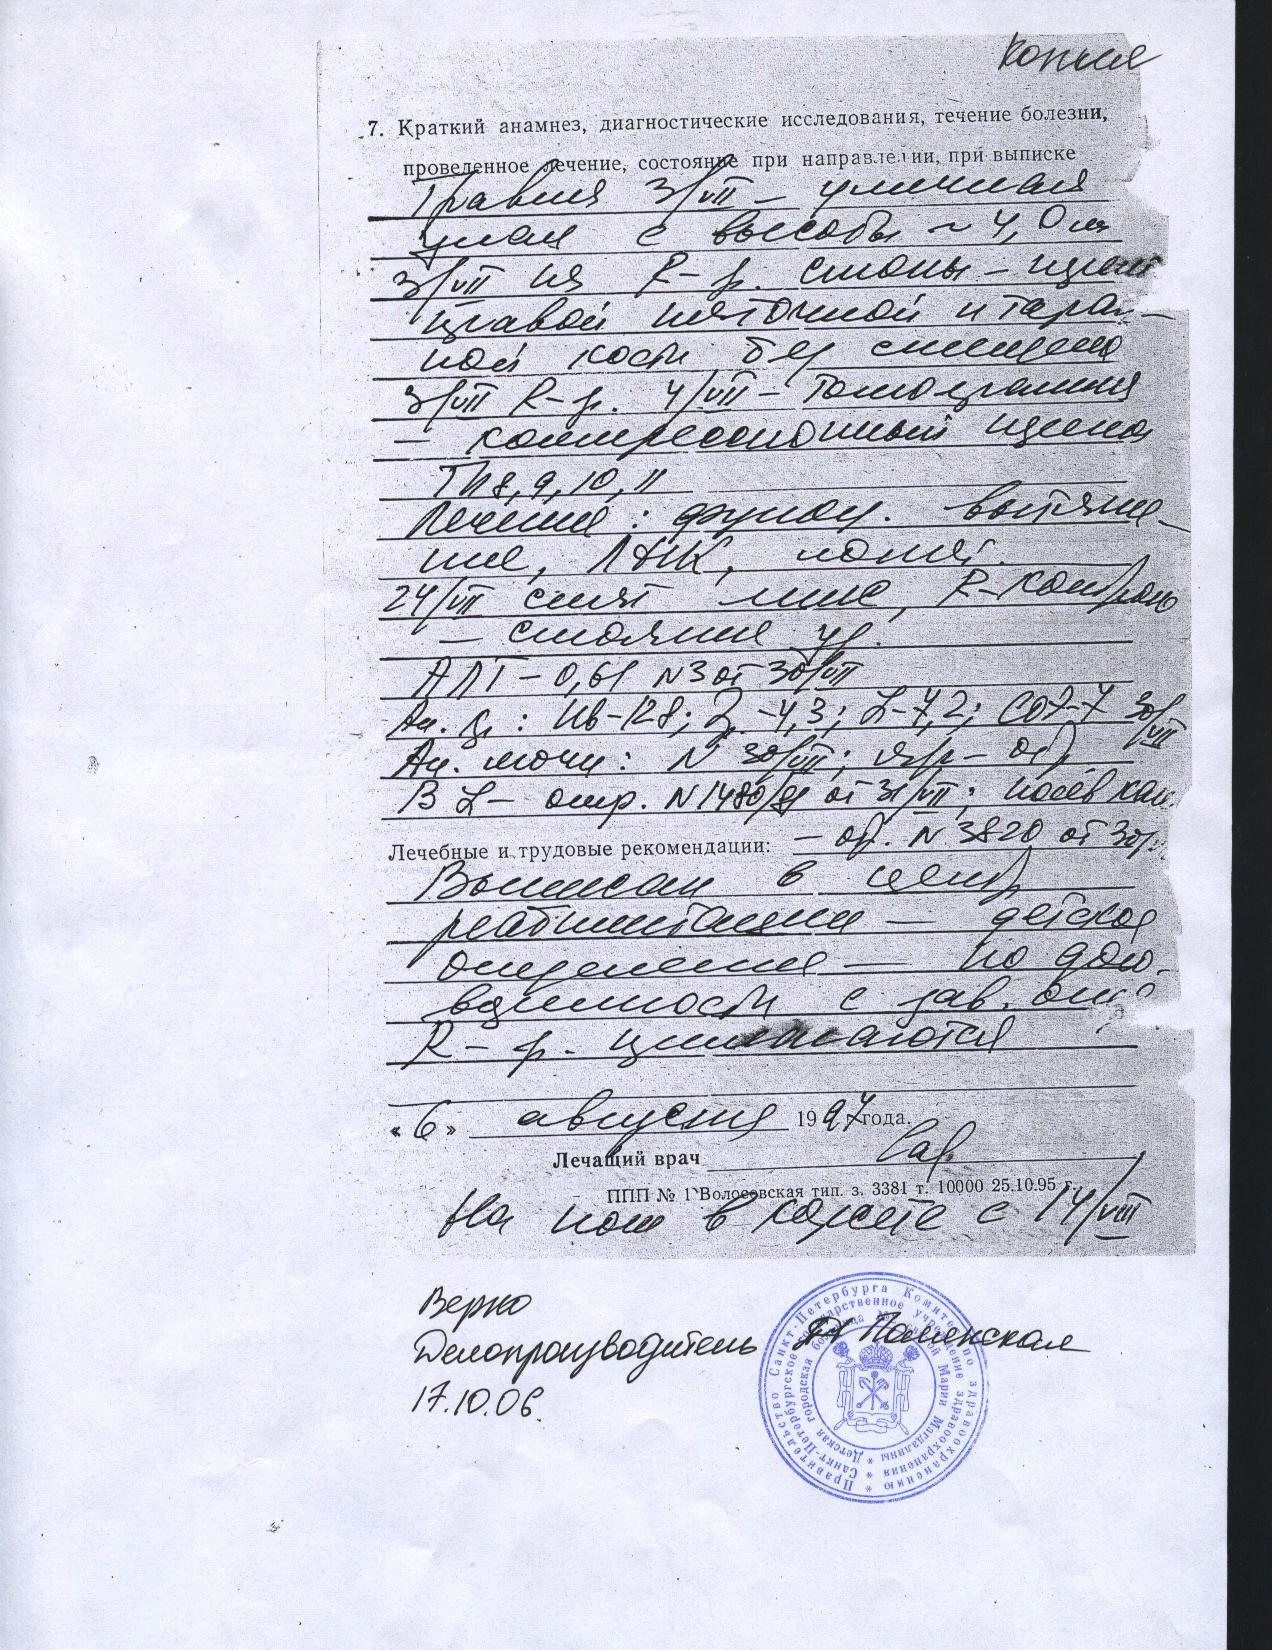 Копия
7. Краткий анамнез, диагностические исследования, течение болезни,
проведенное лечение, состояние при направлении, при выписке
Травма 3/VII – уличная
упал с высоты ~ 4,0 м
3/VII на R-гр. стопы –
правой пяточной и таран-
ной кости без смещения
3/VII R-гр. 4/VII – томограмма
– компрессионный перелом
Th 8, 9, 10, 11
Лечение: функц. вытяже-
ние, ЛФК,
24/VII снят гипс, R-контроль
– стояние уд.
АЛТ – 0,61 N3 от 30/VII
Ан. кр.: Нв-128; Э. -4,3; L-7,2; СОЭ-7 30/VII
Ан. мочи: N 30/VII; – отр.
В L – отр. N1480/ от 31/VII; посев кал.
Лечебные и трудовые рекомендации: – отр. N 3820 от 30/
Выписан в центр
реабилитации – детское
отделение – по дого-
воренности с зав. отд
R-гр. прилагаются
«6» августа 1997 года.
Лечащий врач
ППП № 1 Волосовская тип. з. 3381 т. 10000 25.10.95 г.
На ноги в корсете с 14/VIII
Верно
Делопроизводитель
17.10.06.
Правительство Санкт-Петербурга Комитет по здравоохранению
Санкт-Петербургское государственное учреждение здравоохранения
Детская городская больница святой Марии Магдалины